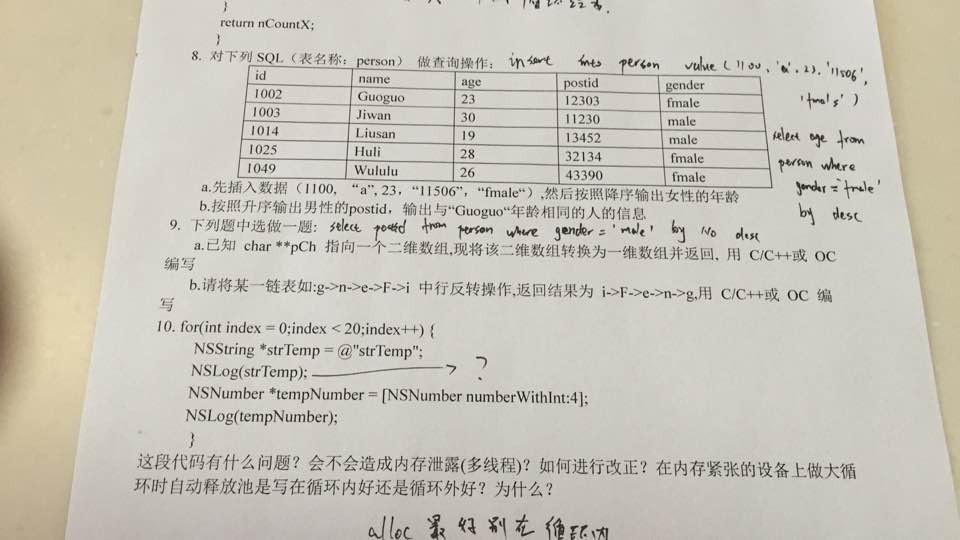 }
return nCountX;
}
8. 对下列 SQL（表名称：person）做查询操作： insert into person value (1100, 'a', 23, '11506',
'fmals')
id name age postid gender
1002 Guoguo 23 12303 fmale
1003 Jiwan 30 11230 male
1014 Liusan 19 13452 male
1025 Huli 28 32134 fmale
1049 Wululu 26 43390 fmale
select age from
person where
gender = 'fmale'
by desc
a.先插入数据（1100, “a”, 23，“11506”，“fmale“）,然后按照降序输出女性的年龄
b.按照升序输出男性的postid，输出与“Guoguo“年龄相同的人的信息
9. 下列题中选做一题: select postid from person where gender = 'male' by no desc
a.已知 char **pCh 指向一个二维数组,现将该二维数组转换为一维数组并返回, 用 C/C++或 OC
编写
b.请将某一链表如:g->n->e->F->i 中行反转操作,返回结果为 i->F->e->n->g,用 C/C++或 OC 编
写
10. for(int index = 0;index < 20;index++) {
NSString *strTemp = @"strTemp";
NSLog(strTemp); ?
NSNumber *tempNumber = [NSNumber numberWithInt:4];
NSLog(tempNumber);
}
这段代码有什么问题？会不会造成内存泄露(多线程)？如何进行改正？在内存紧张的设备上做大循
环时自动释放池是写在循环内好还是循环外好？为什么？
alloc 最好别在循环内